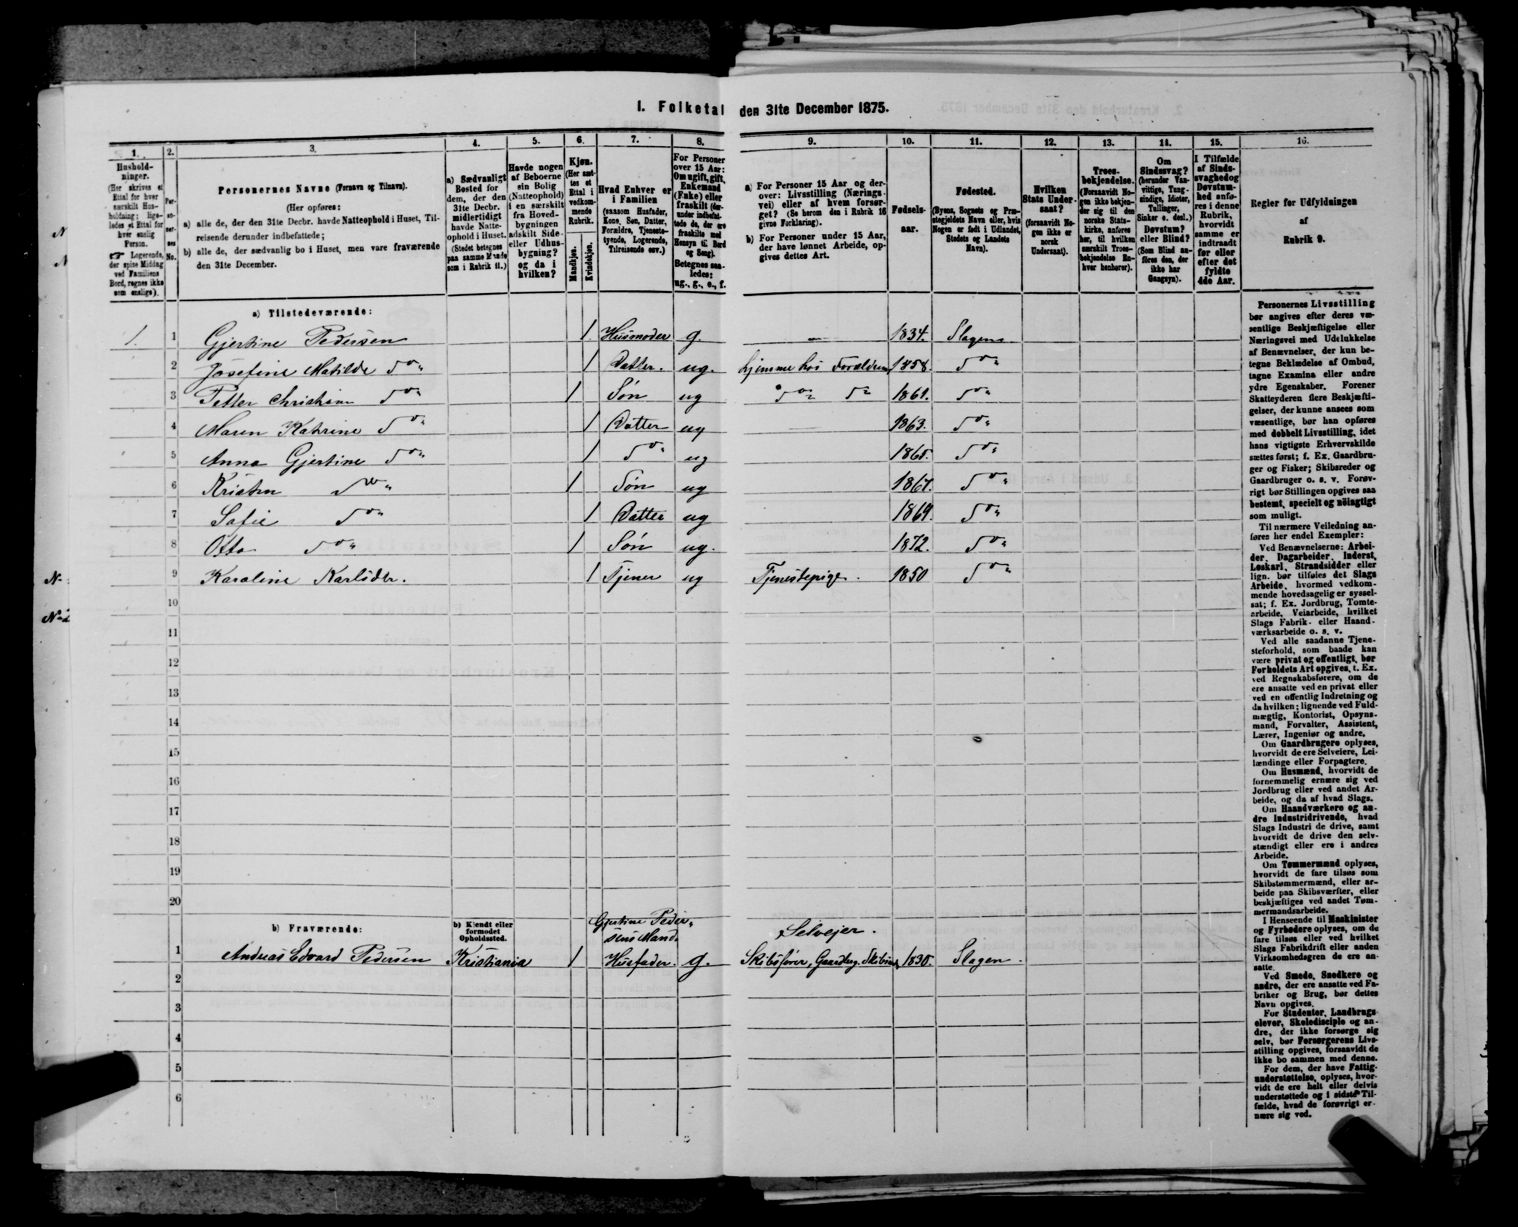 I. Folketal den 31te December 1875.
1.
Husholdninger.
(Her skrives et Ettal for hver særskilt Husholdning; ligeledes et Ettal for hver enslig Person.
☞ Logerende, der spise Middag ved Familiens Bord, regnes ikke som enslige).
2.
Personernes No.
3.
Personernes Navne (Fornavn og Tilnavn).
(Her opføres:
a) alle de, der den 31te Decbr. havde Natteophold i Huset, Tilreisende derunder indbefattede;
b) alle de, der sædvanlig bo i Huset, men vare fraværende den 31te December.
4.
a) Sædvanligt Bosted for dem, der den 31te Decbr. i midlertidigt havde Natteophold i Huset.
(Stedet betegnes paa samme Maade som i Rubrik 11.)
5.
Havde nogen af Beboerne sin Bolig (Natteophold) i en særskilt fra Hovedbygningen adskilt Side- eller Udhusbygning? og da i hvilken?
6.
Kjøn.
(Her sættes et Ettal i vedkommende Rubrik.
Mandkjøn.
Kvindekjøn.
7.
Hvad Enhver er i Familien
(saasom Husfader, Kone, Søn, Datter, Forældre, Tjenestetyende, Logerende, Tilreisende osv.)
8.
For Personer over 15 Aar: Om ugift, gift, Enkemand (Enke) eller fraskilt (derunder indbefattede de, der ere fraskilte med Hensyn til Bord og Seng).
Betegnes saaledes: ug., g., e., f.
9.
a) For Personer 15 Aar og derover: Livsstilling (Næringsvei) eller af hvem forsørget? (Se herom den i Rubrik 16 givne Forklaring).
b) For Personer under 15 Aar, der have lønnet Arbeide, opgives dettes Art.
10.
Fødselsaar.
11.
Fødested.
(Byens, Sognets og Præstegjeldets Navn eller, hvis Nogen er født i Udlandet, Stedets og Landets Navn).
12.
Hvilken Stats Undersaat?
(forsaavidt Nogen ikke er norsk Undersaat).
13.
Troesbekjendelse.
(Forsaavidt Nogen ikke bekjender sig til den norske Statskirke, anføres her, til hvilken særskilt Troesbekjendelse Enhver henhører).
14.
Om Sindssvag? (herunder Vanvittige, Tungsindige, Idioter, Tullinger, Sinker o. desl.) Døvstum? eller Blind?
(Som Blind anføres den, der ikke har Gangsyn).
15.
I Tilfælde af Sindssvaghed og Døvstumhed anføres i denne Rubrik, hvorvidt samme er indtraadt før eller efter det fyldte 4de Aar.
16.
Regler for Udfyldningen
af
Rubrik 9.
a) Tilstedeværende:
1. 1 Gjertine Pedersen 1 Husmoder g. — 1834. Slagen
2 Josefine Matilde Do 1 Datter. ug. hjemme hos Forældrene 1858. Do
3 Petter Christian Do 1 Søn ug Do Do 1861. Do
4 Maren Katrine Do 1 Datter ug 1863. Do
5 Anna Gjertine Do 1 Do ug 1865. Do
6 Kristen Do 1 Søn ug 1867. Do
7 Sofie Do 1 Datter ug 1869. Do
8 Otto Do 1 Søn ug. 1872. Do
9 Karoline Karlsdtr. 1 Tjener ug Tjenestepige. 1850 Do
10
11
12
13
14
15
16
17
18
19
20
b) Fraværende:
b) Kjendt eller formodet Opholdssted.
Gjertine Pedersens Mand. Selveier.
1 Andreas Edvard Pedersen Kristiania 1 Husfader. g. Skibsfører, Gaardbr. 1830. Slagen
2
3
4
5
6
Personernes Livsstilling
bør angives efter deres væ-
sentlige Beskjæftigelse eller
Næringsvei med Udelukkelse
af Benævnelser, der kun be-
tegne Beklædelse af Ombud,
tagne Examina eller andre
ydre Egenskaber. Forener
Skatteyderen flere Beskjæfti-
gelser, der kunne ansees som
væsentlige, bør han opføres
med dobbelt Livsstilling, idet
hans vigtigste Erhvervskilde
sættes først; f. Ex. Gaardbru-
ger og Fisker; Skibsreder og
Gaardbruger o. s. v. Forøv-
rigt bør Stillingen opgives saa
bestemt, specielt og nöiagtigt
som muligt.
Til nærmere Veiledning an-
føres her endel Exempler:
Ved Benævnelserne: Arbei-
der, Dagarbeider, Inderst,
Løskarl, Strandsidder eller
lign. bør tilføies det Slags
Arbeide, hvormed vedkom-
mende hovedsagelig er syssel-
sat; f. Ex. Jordbrug, Tomte-
arbeide, Veiarbeide, hvilket
Slags Fabrik- eller Haand-
værksarbeide o. s. v.
Ved alle saadanne Tjene-
steforhold, som baade kan
være privat og offentligt, bør
Forholdets Art opgives, t. Ex.
ved Regnskabsførere, om de
ere ansatte ved en privat eller
ved en offentlig Indretning og
da hvilken; lignende ved Fuld-
mægtig, Kontorist, Opsyns-
mand, Forvalter, Assistent,
Lærer, Ingeniør og andre.
Om Gaardbrugere oplyses,
hvorvidt de ere Selveiere, Lei-
lændinge eller Forpagtere.
Om Husmænd, hvorvidt de
fornemmelig ernære sig ved
Jordbrug eller ved andet Ar-
beide, og da af hvad Slags.
Om Haandværkere og an-
dre Industridrivende, hvad
Slags Industri de drive, samt
hvorvidt de drive den selv-
stændigt eller ere i andres
Arbeide.
Om Tømmermænd oplyses,
hvorvidt de fare tilsøs som
Skibstømmermænd, eller ar-
beide paa Skibsværfter, eller
beskjæftiges ved andet Tøm-
mermandsarbeide.
I Henseende til Maskinister
og Fyrbødere oplyses, om de
fare tilsøs eller ved hvilket
Slags Fabrikdrift eller anden
Virksomhedsgren de ere an-
satte.
Ved Smede, Snedkere og
andre, der ere ansatte ved Fa-
briker og Brug, bør dettes
Navn opgives.
For Studenter, Landbrugs-
elever, Skoledisciple og an-
dre, der ikke forsørge sig
selv, bør Forsørgerens Livs-
stilling opgives, forsaavidt de
ikke bo sammen med denne.
For dem, der have Fattig-
understøttelse, oplyses, hvor-
vidt de ere helt eller delvis
understøttede og i sidste Til-
fælde, hvad de forøvrigt er-
nære sig ved.